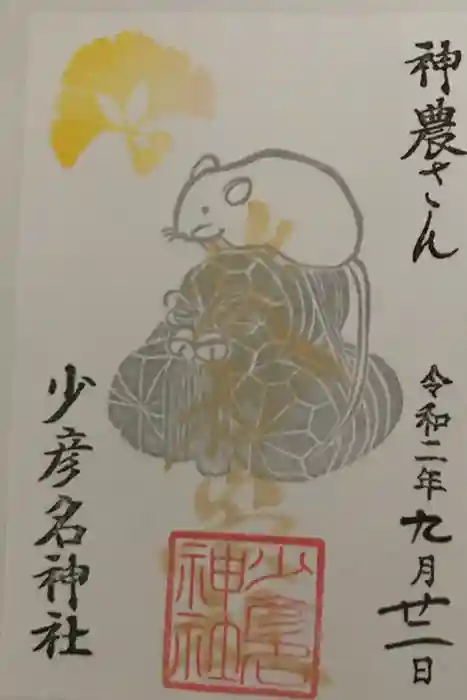 神農さん
令和二年九月廿一日
少彦名神社
少彦名神社